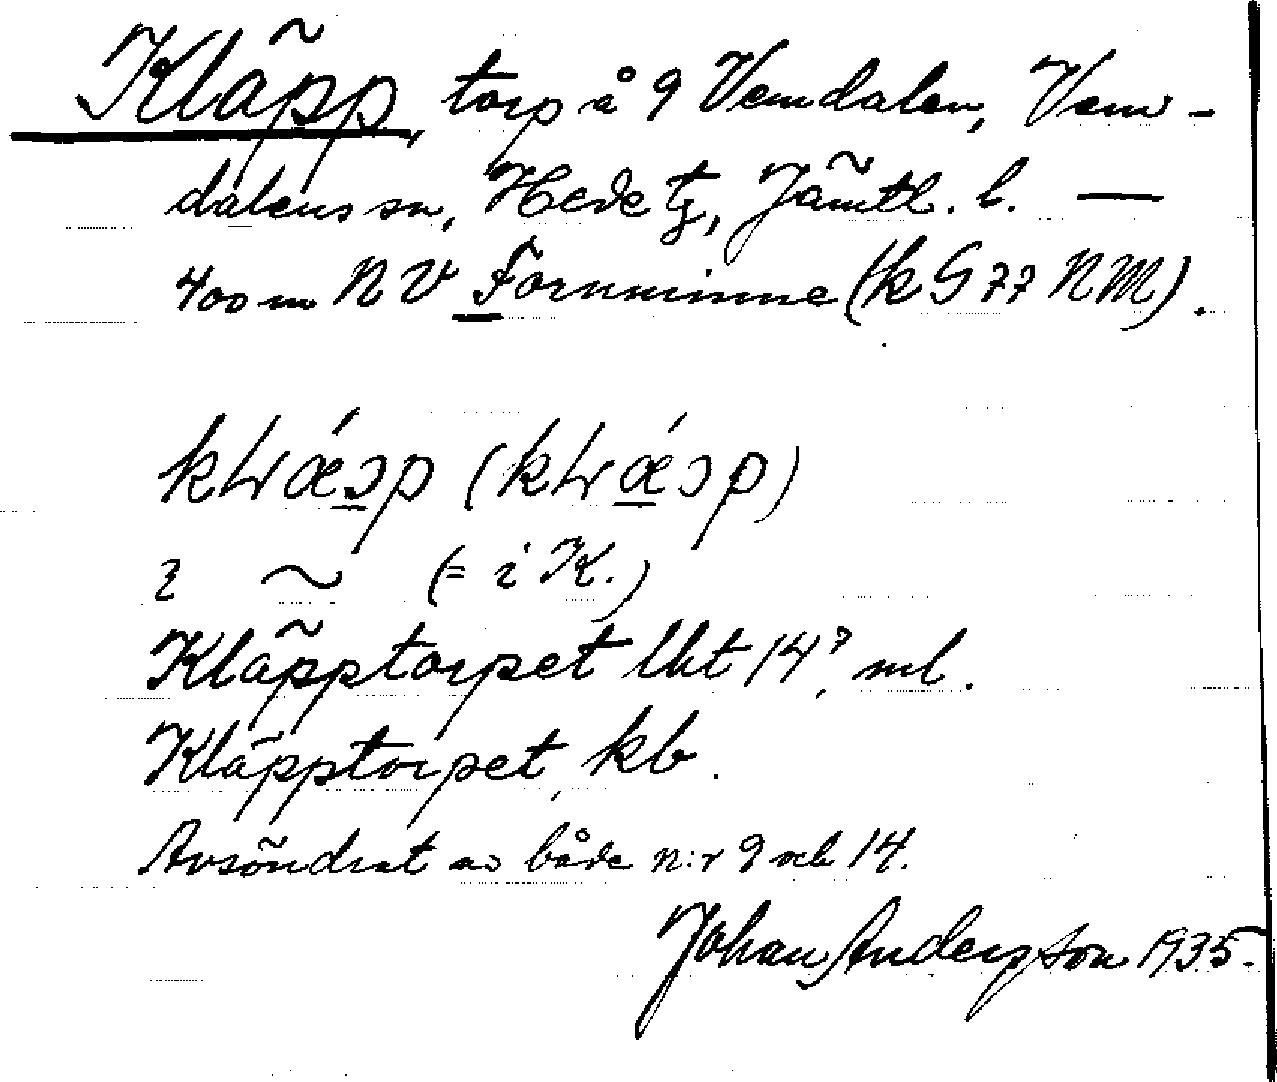 Kläpp, torp å 9 Vemdalen, Vem-
dalens sn, Hede tg, Jämtl. l. —
400 m NV Fornminne (k G 77 NM).
(= i K.)
Kläpptorpet lht 14², ml.
Kläpptorpet, kb.
Avsöndrat av både n:r 9 och 14.
Johan Anderson 1935.